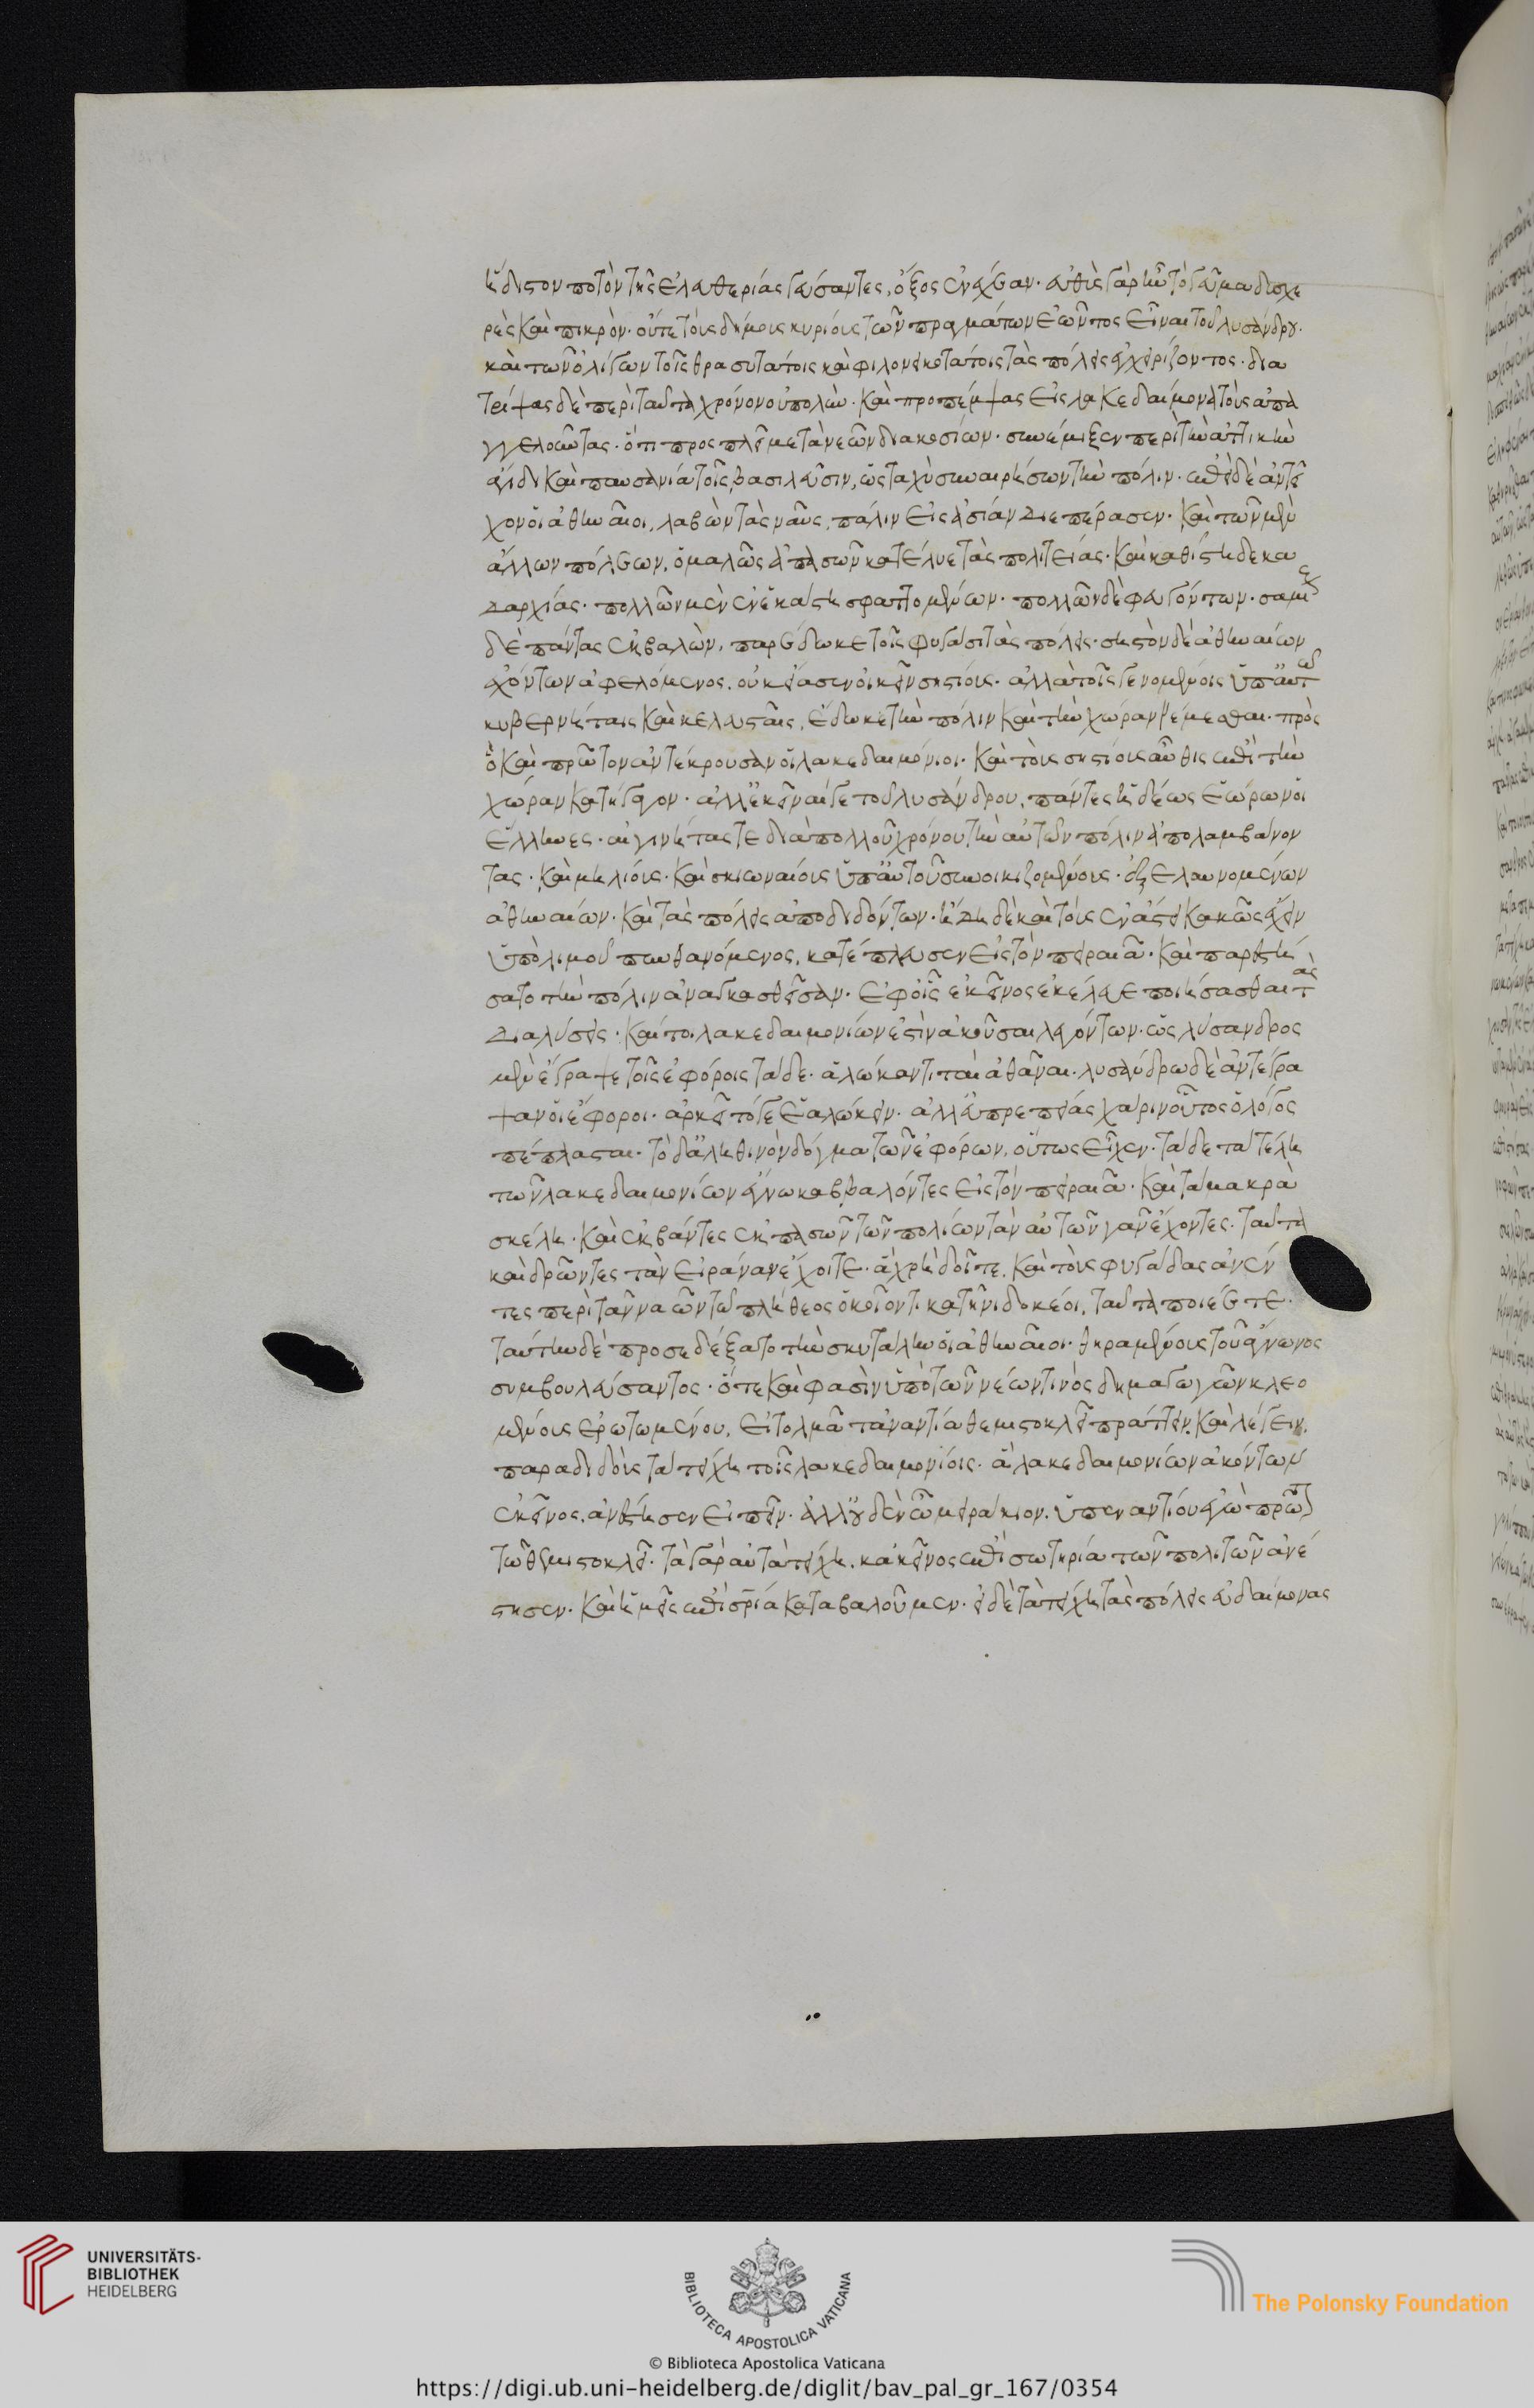 ἥδιστον ποτὸν τῆς ἐλευθερίας γεύσαντες, ὄξος ἐνέχεαν· εὐθὺς γὰρ ἦν τὸ γεῦμα δυσχε
ρὲς καὶ πικρὸν· οὔτε τοὺς δήμους κυρίους τῶν πραγμάτων ἐῶντος εἶναι τοῦ λυσάνδρου·
καὶ τῶν ὀλίγων τοῖς θρασυτάτοις καὶ φιλονεικοτάτοις τὰς πόλεις ἐγχειρίζοντος· δια
τρίψας δὲ περὶ ταῦτα χρόνον οὐ πολὺν· καὶ προπέμψας εἰς λακεδαίμονα τοὺς ἀπα
γγελοῦντας· ὅτι προσπλεῖ μετὰ νεῶν διακοσίων· συνέμιξεν περὶ τὴν ἀττικὴν
ἄγιδι καὶ παυσανία τοῖς βασιλεῦσιν, ὡς ταχὺ συναιρήσων τὴν πόλιν· ἐπεὶ δὲ ἀντεῖ
χον οἱ ἀθηναῖοι, λαβὼν τὰς ναῦς, πάλιν εἰς ἀσίαν διεπέρασεν· καὶ τῶν μὲν
ἄλλων πόλεων, ὁμαλῶς ἁπασῶν κατέλυε τὰς πολιτείας· καὶ καθίστη δεκα
δαρχίας· πολλῶν μὲν ἐν ἑκάστη σφαττομένων· πολλῶν δὲ φευγόντων· σαμίους
δὲ πάντας ἐκβαλὼν, παρέδωκε τοῖς φυγάσι τὰς πόλεις· σηστὸν δὲ ἀθηναίων
ἐχόντων ἀφελόμενος, οὐκ εἴασεν οἰκεῖν σηστίους· ἀλλὰ τοῖς γενομένοις ὑπ αὐτῶ
κυβερνήταις καὶ κελευσταῖς, ἔδωκε τὴν πόλιν καὶ τὴν χώραν νέμεσθαι· πρὸς
ὃ καὶ πρῶτον ἀντέκρουσαν οἱ λακεδαιμόνιοι· καὶ τοὺς σηστίους αὖθις ἐπὶ τὴν
χώραν κατήγαγον· ἀλλ ἐκεῖνα γε τοῦ λυσάνδρου, πάντες ἡδέως ἑώρων οἱ
ἕλληνες· αἰγινήτας τε διὰ πολλοῦ χρόνου τὴν αὑτῶν πόλιν ἀπολαμβάνον
τας· καὶ μηλίους· καὶ σκιωναίους ὑπ αὐτοῦ συνοικιζομένους· ἐξελαυνομένων
ἀθηναίων· καὶ τὰς πόλεις ἀποδιδόντων· ἤδη δὲ καὶ τοὺς ἐν ἄστει κακῶς ἔχειν
ὑπὸ λιμοῦ πυνθανόμενος, κατέπλευσεν εἰς τὸν πειραιᾶ· καὶ παρεστή
σατο τὴν πόλιν ἀναγκασθεῖσαν· ἐφ οἷς ἐκεῖνος ἐκέλευε ποιήσασθαι τὰς
διαλύσεις· καίτοι λακεδαιμονίων ἐστὶν ἀκοῦσαι λεγόντων· ὡς λύσανδρος
μὲν ἔγραψε τοῖς ἐφόροις τάδε· ἁλώκαντι ταὶ ἀθᾶναι· λυσάνδρω δὲ ἀντέγρα
ψαν οἱ ἔφοροι· ἀρκεῖ τόγε ἑαλώκειν· ἀλλ εὐπρεπείας χάριν οὗτος ὁ λόγος
πέπλασται· τὸ δ ἀληθινὸν δόγμα τῶν ἐφόρων, οὕτως εἶχεν· τάδε τὰ τέλη
τῶν λακεδαιμονίων ἔγνω καββαλόντες εἰς τὸν πειραιᾶ· καὶ τὰ μακρὰ
σκέλη· καὶ ἐκβάντες ἐκ πασῶν τῶν πολίων τὰν αὐτῶν γᾶν ἔχοντες· ταῦτα
καὶ δρῶντες τὰν εἰράναν ἔχοιτε· ἃ χρὴ δοῖτε, καὶ τοὺς φυγάδας ἀνέν
τες περὶ τᾶν ναῶν τῶ πλήθεος ὁκοῖόν τι κατηνὶ δοκέοι, ταῦτα ποιέετε·
ταύτην δὲ προσεδέξατο τὴν σκυτάλην οἱ ἀθηναῖοι· θηραμένους τοῦ ἅγνωνος
συμβουλεύσαντος· ὅτε καὶ φασὶν ὑπὸ τῶν νέων τινὸς δημαγωγῶν κλεο
μένους ἐρωτωμένου, εἰ τολμᾶ τἀναντία θεμιστοκλεῖ πράττειν, καὶ λέγειν,
παραδιδοὺς τὰ τείχη τοῖς λακεδαιμονίοις· ἃ λακεδαιμονίων ἀκόντων
ἐκεῖνος, ἀνέστησεν εἰπεῖν· ἀλλ οὐδὲν ὦ μειράκιον, ὑπεναντίον ἐγὼ πράττω
τῶ θεμιστοκλεῖ· τὰ γὰρ αὐτὰ τείχη, κἀκεῖνος ἐπὶ σωτηρία τῶν πολιτῶν ἀνέ
στησεν· καὶ ἡμεῖς ἐπὶ σρία καταβαλοῦμεν· εἰ δὲ τὰ τείχη τὰς πόλεις εὐδαίμονας
UNIVERSITÄTS-
BIBLIOTHEK
HEIDELBERG
BIBLIOTECA APOSTOLICA VATICANA
The Polonsky Foundation
© Biblioteca Apostolica Vaticana
https://digi.ub.uni-heidelberg.de/diglit/bav_pal_gr_167/0354